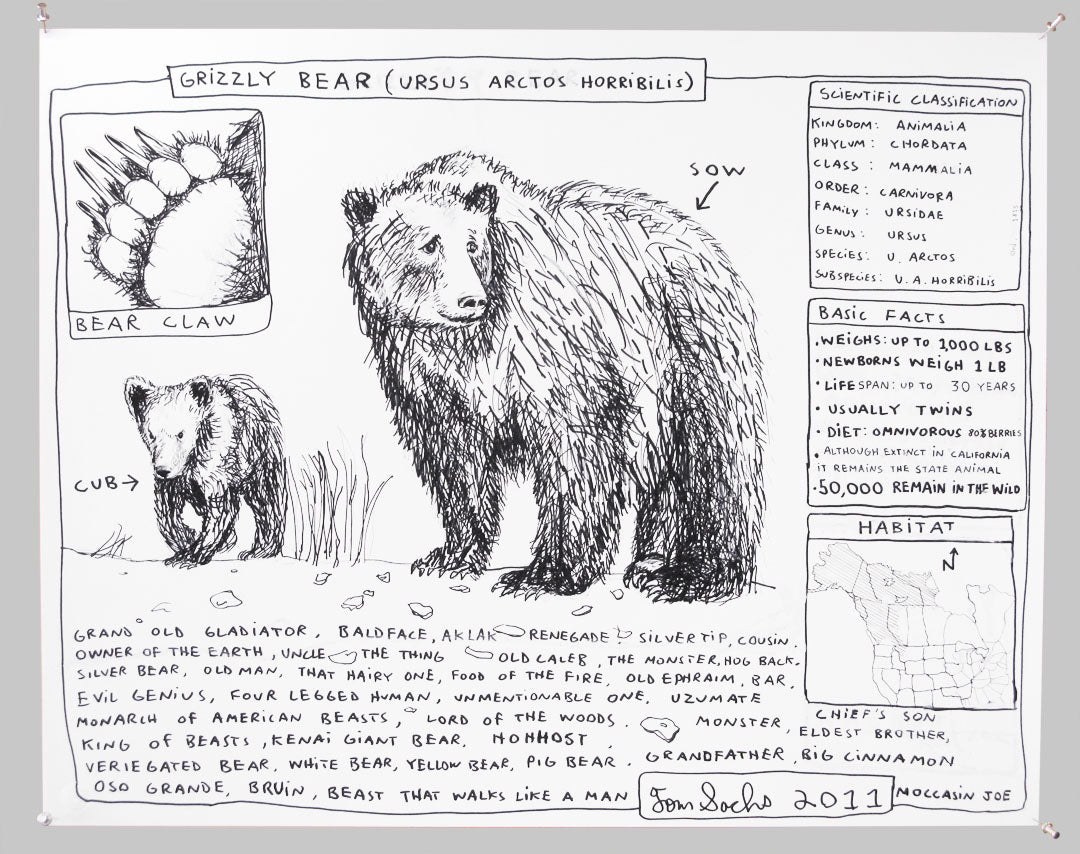 GRIZZLY BEAR (URSUS ARCTOS HORRIBILIS)
BEAR CLAW
SOW
CUB
SCIENTIFIC CLASSIFICATION
KINGDOM: ANIMALIA
PHYLUM: CHORDATA
CLASS: MAMMALIA
ORDER: CARNIVORA
FAMILY: URSIDAE
GENUS: URSUS
SPECIES: U. ARCTOS
SUBSPECIES: U.A. HORRIBILIS
BASIC FACTS
• WEIGHS: UP TO 1,000 LBS
• NEWBORNS WEIGH 1 LB
• LIFESPAN: UP TO 30 YEARS
• USUALLY TWINS
• DIET: OMNIVOROUS 80% BERRIES
• ALTHOUGH EXTINCT IN CALIFORNIA
IT REMAINS THE STATE ANIMAL
• 50,000 REMAIN IN THE WILD
HABITAT
N
GRAND OLD GLADIATOR, BALDFACE, AKLAK RENEGADE, SILVERTIP, COUSIN,
OWNER OF THE EARTH, UNCLE THE THING OLD CALEB, THE MONSTER, HOG BACK,
SILVER BEAR, OLD MAN, THAT HAIRY ONE, FOOD OF THE FIRE, OLD EPHRAIM, BAR,
EVIL GENIUS, FOUR LEGGED HUMAN, UNMENTIONABLE ONE, UZUMATE
MONARCH OF AMERICAN BEASTS, LORD OF THE WOODS. MONSTER, CHIEF'S SON
KING OF BEASTS, KENAI GIANT BEAR, HOHHOST, ELDEST BROTHER,
VERIEGATED BEAR, WHITE BEAR, YELLOW BEAR, PIG BEAR. GRANDFATHER, BIG CINNAMON
OSO GRANDE, BRUIN, BEAST THAT WALKS LIKE A MAN Tom Sachs 2011 MOCCASIN JOE